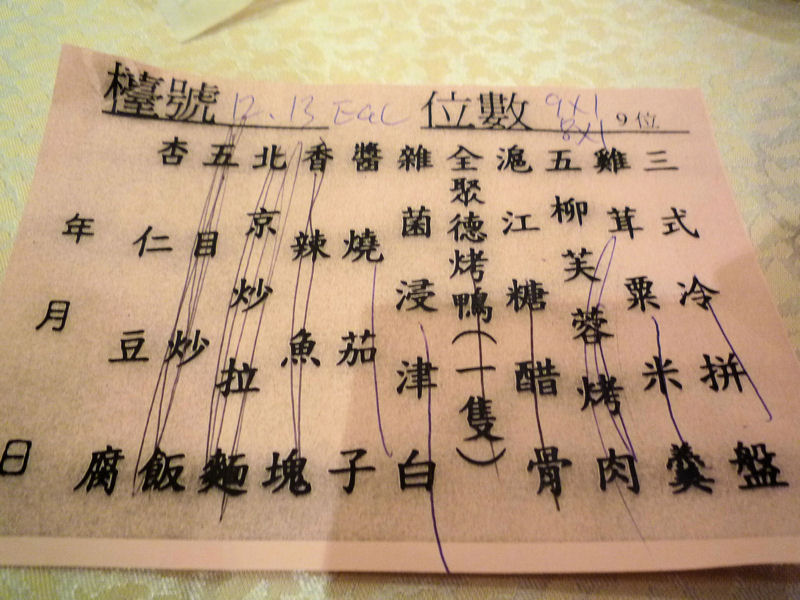 檯號 12、13 EGL 位數 9X1 8X1 9位
三式冷拼盤
雞茸粟米羹
五柳芙蓉烤肉
滬江糖醋骨
全聚德烤鴨(一隻)
雜菌浸津白
醬燒茄子
香辣魚塊
北京炒拉麵
五目炒飯
杏仁豆腐
年月日